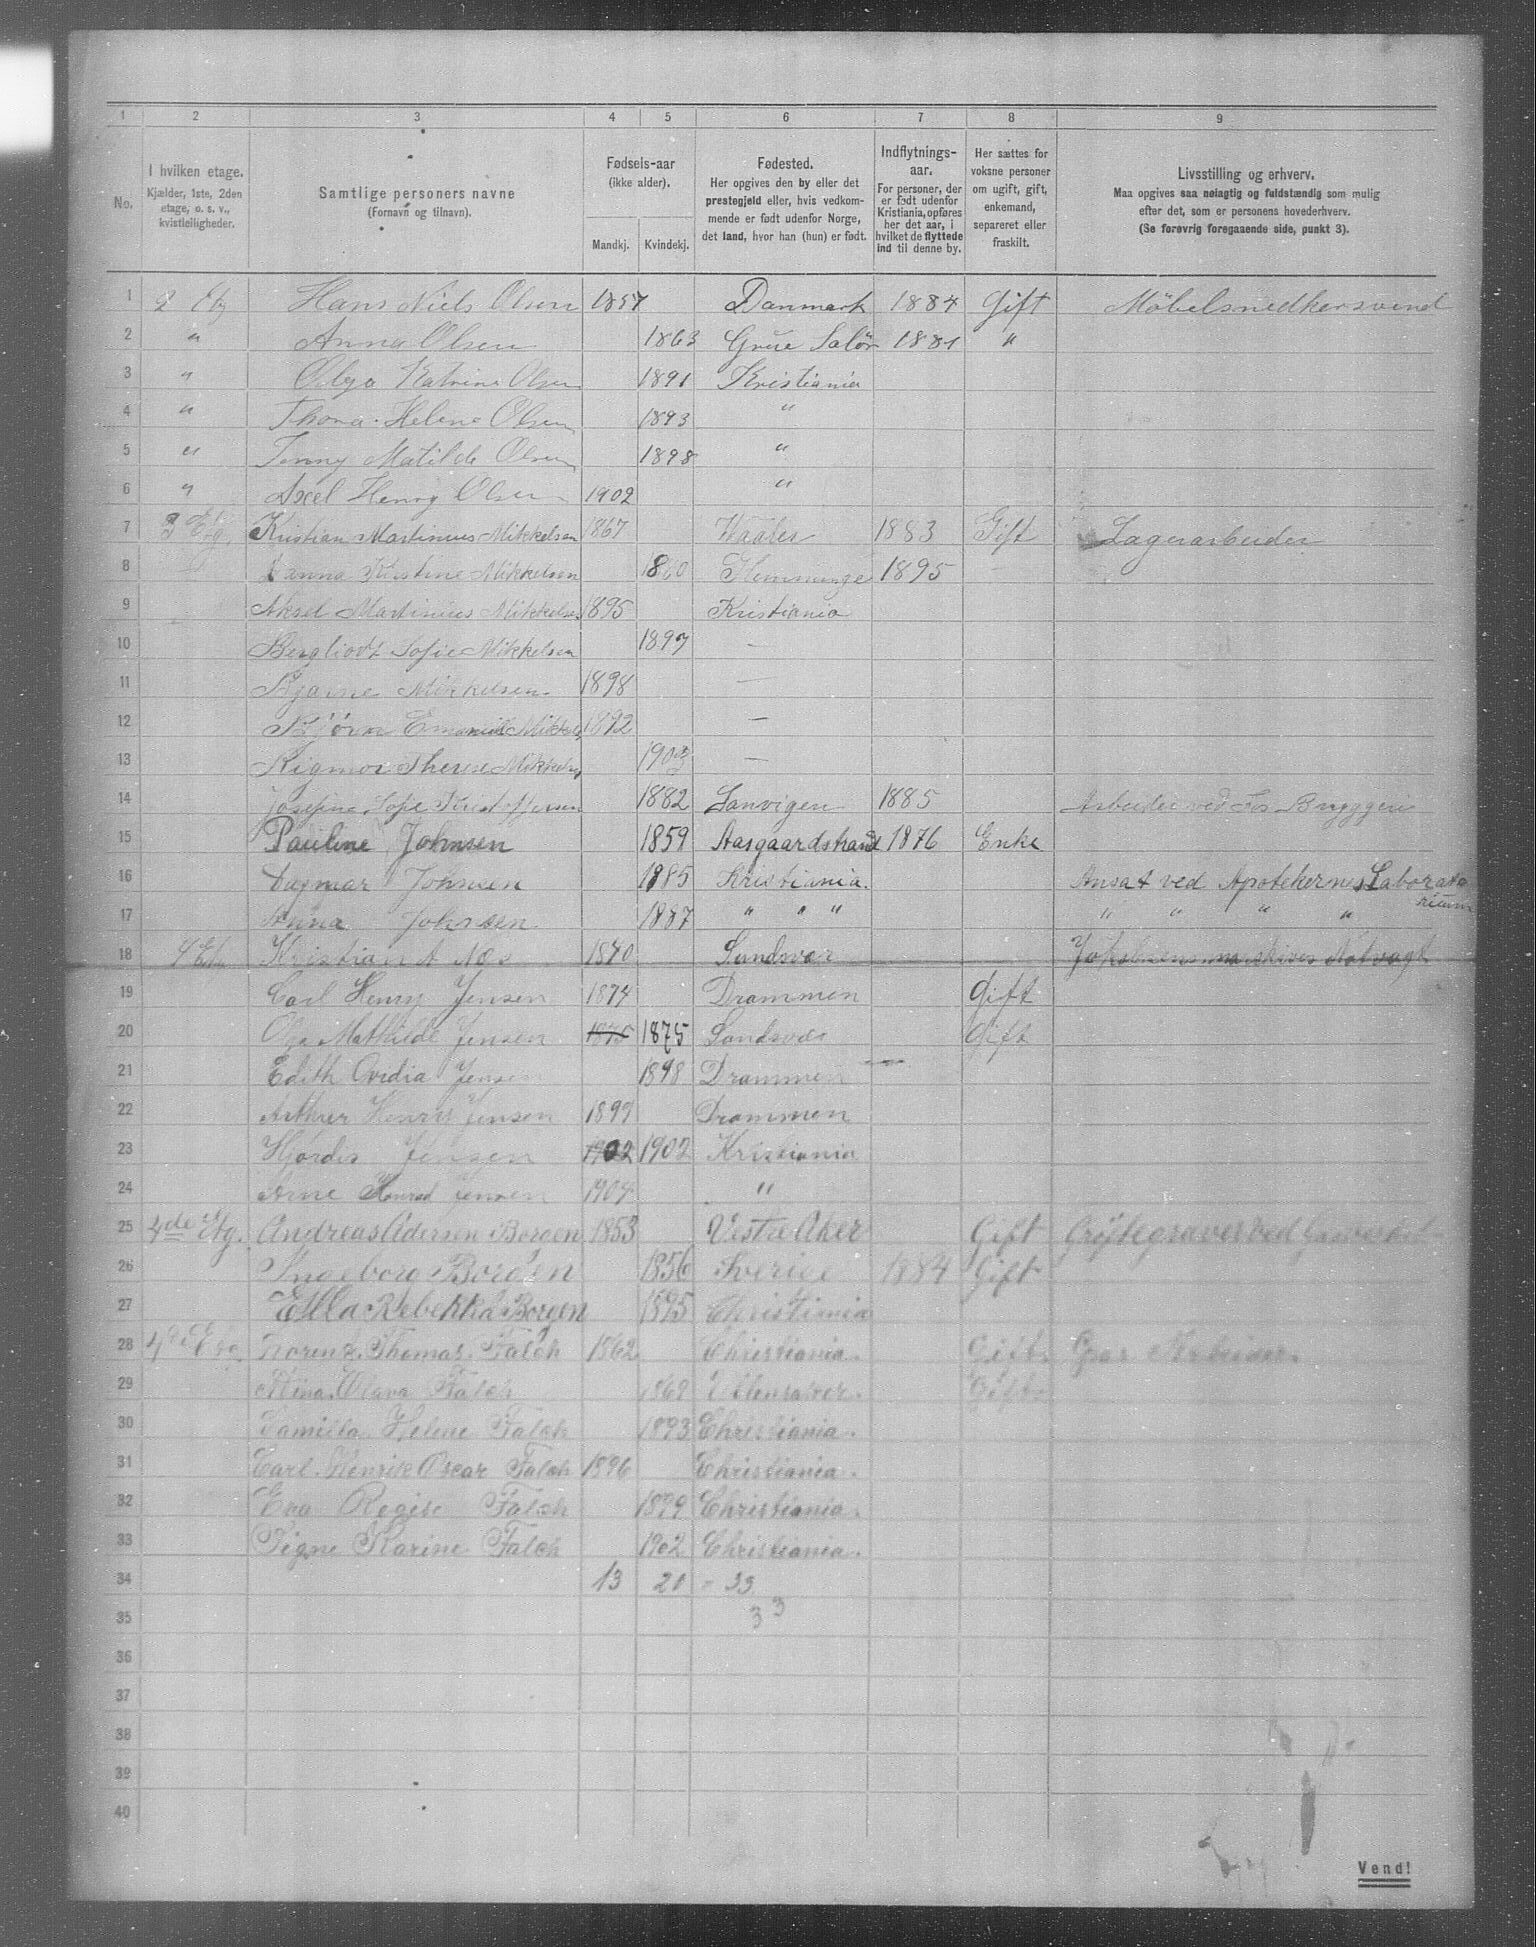 1 2 3 4 5 6 7 8 9
No.
I hvilken etage.
Kjælder, 1ste, 2den
etage, o. s. v.,
kvistleiligheder.
Samtlige personers navne
(Fornavn og tilnavn).
Fødsels-aar
(ikke alder).
Mandkj. Kvindekj.
Fødested.
Her opgives den by eller det
prestegjeld eller, hvis vedkom-
mende er født udenfor Norge,
det land, hvor han (hun) er født.
Indflytnings-
aar.
For personer, der
er født udenfor
Kristiania, opføres
her det aar, i
hvilket de flyttede
ind til denne by.
Her sættes for
voksne personer
om ugift, gift,
enkemand,
separeret eller
fraskilt.
Livsstilling og erhverv.
Maa opgives saa nøiagtig og fuldstændig som mulig
efter det, som er personens hovederhverv.
(Se forøvrig foregaaende side, punkt 3).
1 2 Etg Hans Niels Olsen 1857 Danmark 1884 Gift Møbelsnedkersvend
2 " Anna Olsen 1863 Grue Solør 1881 "
3 " Olga Katrine Olsen 1891 Kristiania
4 " Thora Helene Olsen 1893 "
5 " Jenny Matilde Olsen 1898 "
6 " Axel Henry Olsen 1902 "
7 3 Etg. Kristian Martinius Mikkelsen 1867 Vaaler 1883 Gift Lagerarbeider
8 Kristine Mikkelsen 1860 1895
9 Aksel Martinius Mikkelsen 1895 Kristiania
10 Bergliodt Sofie Mikkelsen 1897 —
11 Bjarne Mikkelsen 1898 —
12 Bjørn Emanuel Mikkels 1892 —
13 Rigmor Therese Mikkelsn —
14 Josefine Sofie Kristoffersen 1882 Lanvigen 1885 Arbeider ved Bryggeri
15 Pauline Johnsen 1859 Aasgaardstrand 1876 Enke
16 Dagmar Johnsen 1885 Kristiania. Ansat ved Apotekernes Laborato
rium
17 Anna Johnsen 1887 " " " " " " "
18 4 Etg Kristian A Næs 1840 Sandsvær Natvagt
19 Carl Henry Jensen 1874 Drammen Gift
20 Olga Mathilde Jensen 1875 1875 Sandsvær Gift
21 Edith Ovidia Jensen 1898 Drammen
22 Arthur Henry Jensen 1899 Drammen
23 Hjørdis Jensen 1902 1902 Kristiania
24 Arne Konrad Jensen 1904 "
25 4de Etg. Andreas Borgen 1853 Vestre Aker Gift Grøftegraver ved Gasverket
26 Ingeborg Borgen 1856 Sverige 1884 Gift
27 Ella Rebekka Borgen 1895 Christiania
28 4de Etg Lorentz Thomas Falch 1862 Christiania. Gift. Arbeider.
29 Olava Falch Gift.
30 Camilla Helene Falch 1893 Christiania.
31 Carl Henrik Oscar Falch 1896 Christiania.
32 Eva Regise Falch 1899 Christiania.
33 Signe Karine Falch 1902 Christiania.
34 13 20 - 33
35 33
36
37
38
39
40
Vend!